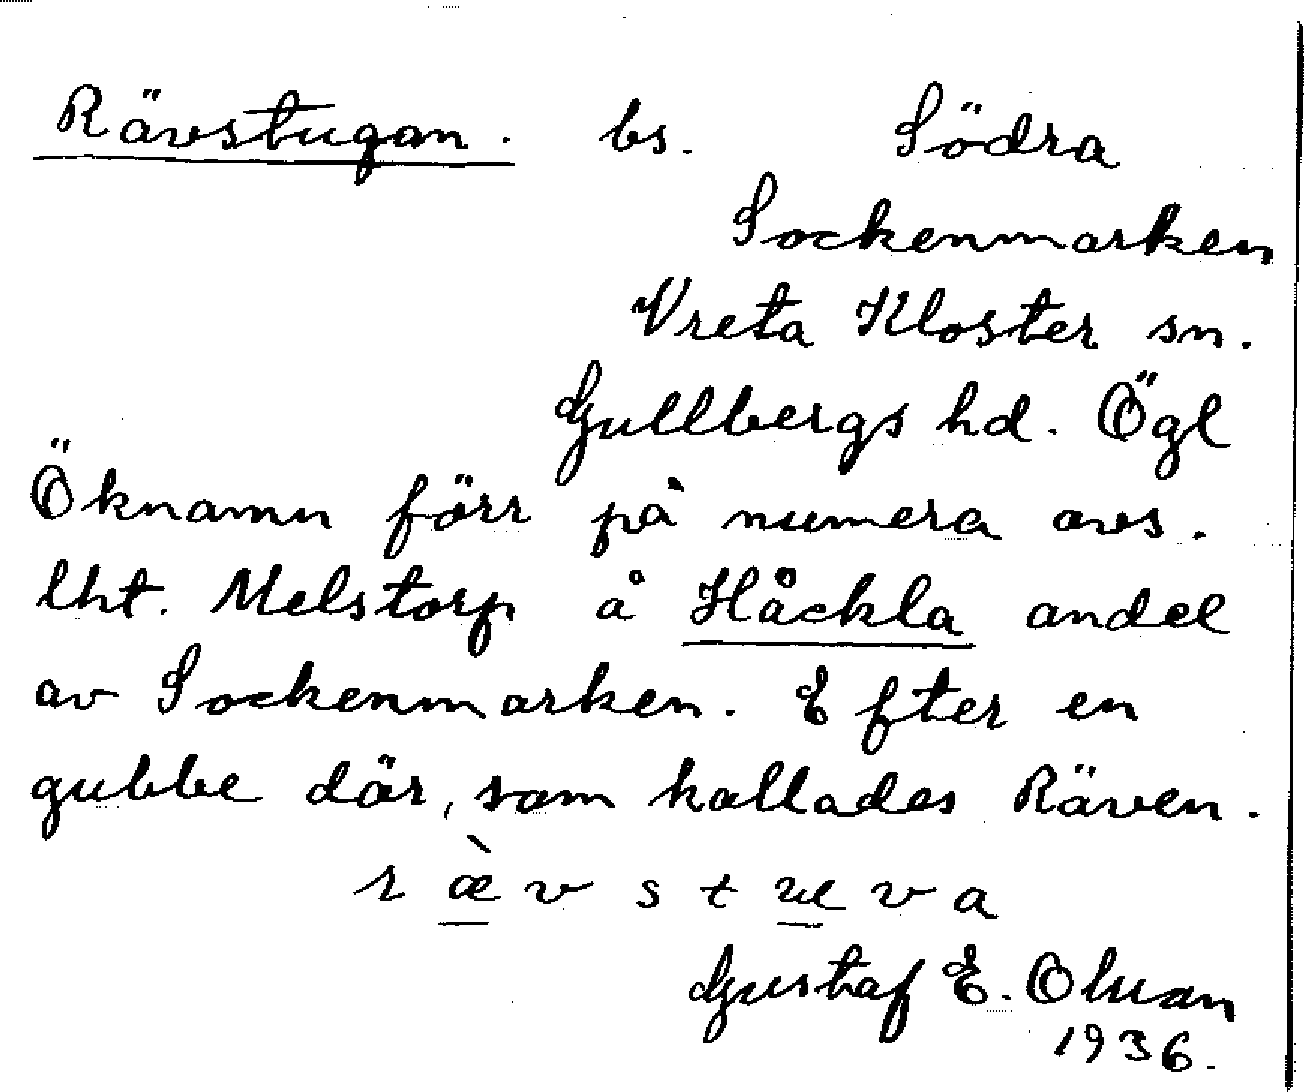 Rävstugan. bs. Södra
Sockenmarken
Vreta Kloster sn.
Gullbergs hd. Ögl
Öknamn förr på numera avs.
lht. Melstorp å Håckla andel
av Sockenmarken. Efter en
gubbe där, som kallades Räven.
r æ̀ v s t u v a
Gustaf E. Olsson
1936.